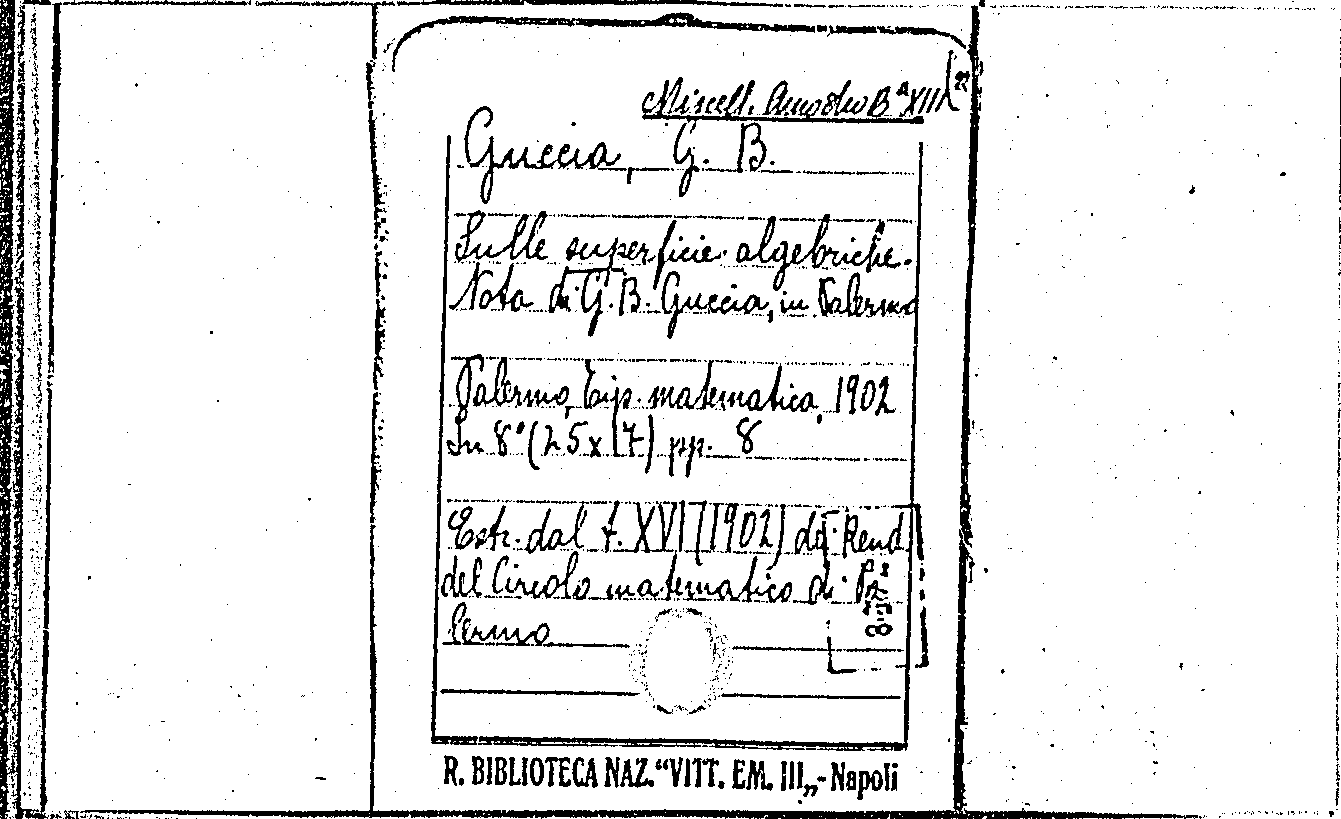 Miscell. Amodeo B^a XIII (22
Guccia, G. B.
Sulle superficie algebriche.
Nota di G. B. Guccia, in Palermo
Palermo, Tip. matematica, 1902
In 8° (25x17) pp. 8
Estr. dal t. XVI (1902) dei Rend.
del Circolo matematico di Pa-
lermo
R. BIBLIOTECA NAZ. “VITT. EM. III„ - Napoli